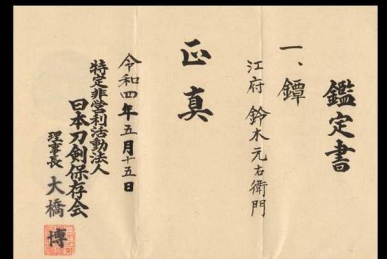 鑑定書
一、鐔
江府 鈴木元右衛門
正真
令和四年五月十五日
特定非営利活動法人
日本刀剣保存会
理事長 大橋博